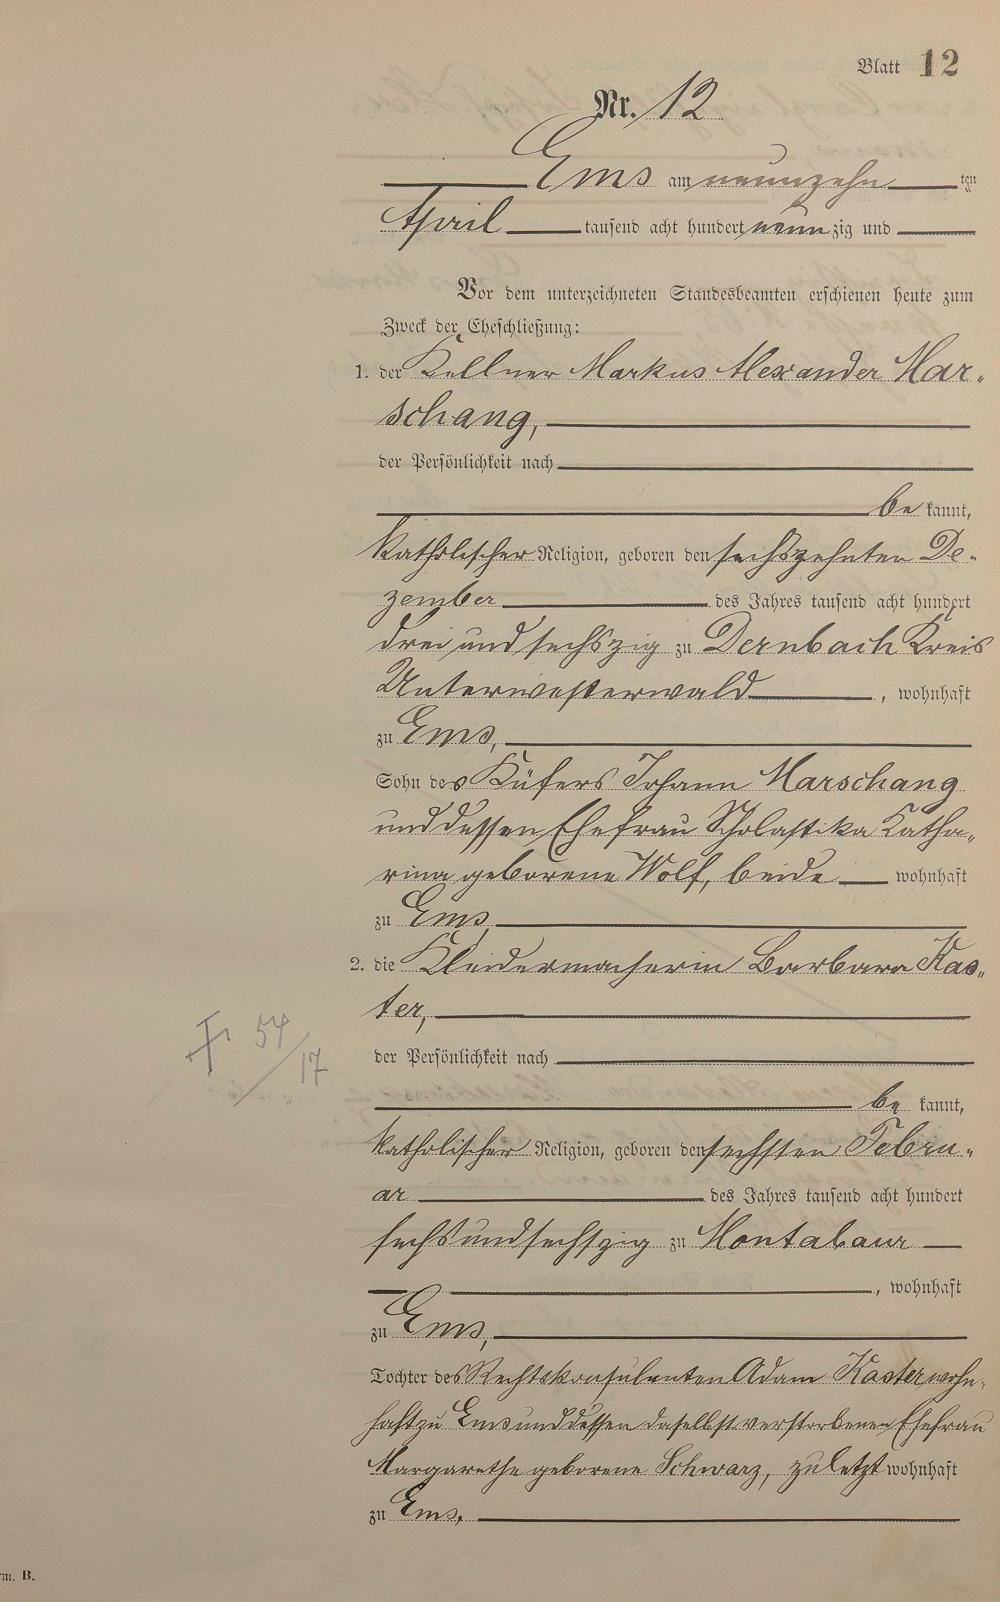 Blatt 12
Nr. 12
Ems am neunzehn ten
April tausend acht hundert neunzig und
Vor dem unterzeichneten Standesbeamten erschienen heute zum
Zweck der Eheschließung:
1. der Kellner Markus Alexander Mar-
schang,
der Persönlichkeit nach
be kannt,
katholischer Religion, geboren den sechszehnten De-
zember des Jahres tausend acht hundert
drei und sechszig zu Dernbach Kreis
Unterwesterwald, wohnhaft
zu Ems,
Sohn des Küfers Johann Marschang
und dessen Ehefrau Scholastika Katha-
rina geborene Wolf, beide wohnhaft
zu Ems,
2. die Kleidermacherin Barbara Kas-
ter,
der Persönlichkeit nach
be kannt,
katholischer Religion, geboren den sechsten Febru-
ar des Jahres tausend acht hundert
sechs und sechszig zu Montabaur
, wohnhaft
zu Ems,
Tochter des Rechtskonsulenten Adam Kaster wohn-
haft zu Ems und dessen daselbst verstorbenen Ehefrau
Margarethe geborene Schwarz, zuletzt wohnhaft
zu Ems.
54/17
rm. B.